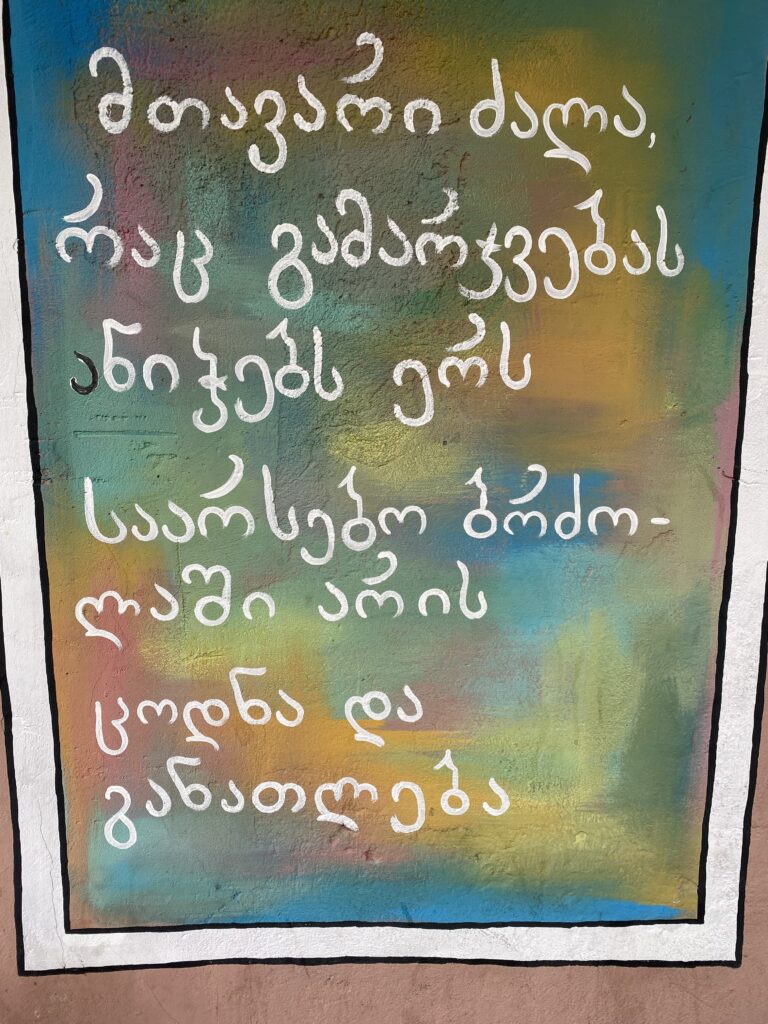 მთავარი ძალა,
რაც გამარჯვებას
ანიჭებს ერს
საარსებო ბრძო-
ლაში არის
ცოდნა და
განათლება